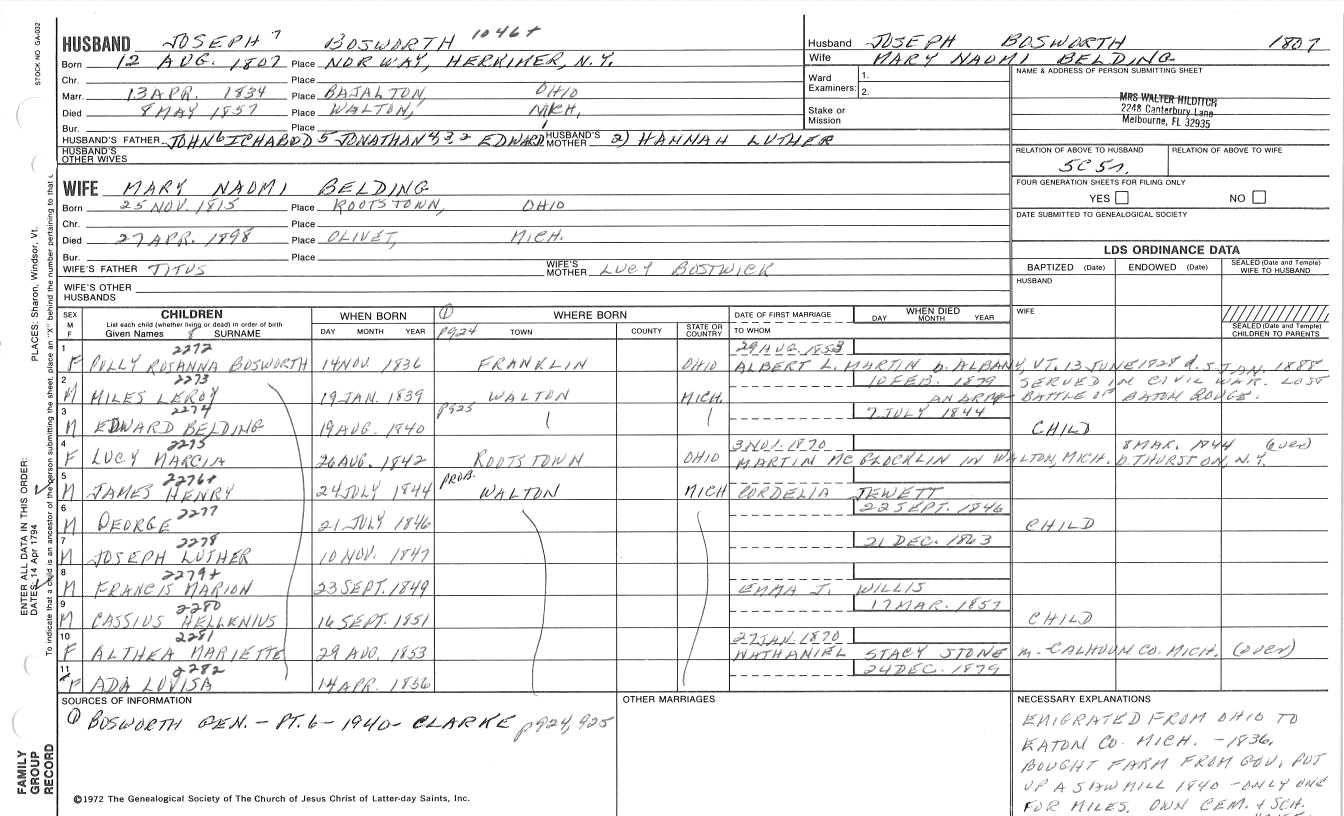 STOCK NO. GA-032
HUSBAND JOSEPH 7 BOSWORTH 1046+
Born 12 AUG. 1807 Place NORWAY, HERKIMER, N.Y.
Chr. Place
Marr. 13 APR. 1834 Place BAJALTON, OHIO
Died 8 MAY 1857 Place WALTON, MICH,
Bur. Place
HUSBAND'S FATHER JOHN 6 ICHABOD 5 JONATHAN 4,3,2 EDWARD HUSBAND'S MOTHER 2) HANNAH LUTHER
HUSBAND'S OTHER WIVES
Husband JOSEPH BOSWORTH 1807
Wife MARY NAOMI BELDING
Ward Examiners: 1.
2.
Stake or Mission
NAME & ADDRESS OF PERSON SUBMITTING SHEET
MRS WALTER HILDITCH
2248 Canterbury Lane
Melbourne, FL 32935
RELATION OF ABOVE TO HUSBAND RELATION OF ABOVE TO WIFE
5C 5r.
FOUR GENERATION SHEETS FOR FILING ONLY
YES NO
DATE SUBMITTED TO GENEALOGICAL SOCIETY
WIFE MARY NAOMI BELDING
Born 25 NOV. 1815 Place ROOTSTOWN, OHIO
Chr. Place
Died 27 APR. 1898 Place OLIVET, MICH.
Bur. Place
WIFE'S FATHER TITUS WIFE'S MOTHER LUCY BOSTWICK
WIFE'S OTHER HUSBANDS
LDS ORDINANCE DATA
BAPTIZED (Date) ENDOWED (Date) SEALED (Date and Temple) WIFE TO HUSBAND
HUSBAND
WIFE
SEALED (Date and Temple) CHILDREN TO PARENTS
SEX M F CHILDREN WHEN BORN ① WHERE BORN DATE OF FIRST MARRIAGE WHEN DIED
List each child (whether living or dead) in order of birth
Given Names 8 SURNAME DAY MONTH YEAR p924 TOWN COUNTY STATE OR COUNTRY TO WHOM DAY MONTH YEAR
1 2272 29 AUG. 1853
F POLLY ROSANNA BOSWORTH 14 NOV. 1836 FRANKLIN OHIO ALBERT L. MARTIN b. ALBANY, VT. 13 JUNE 1828 d. 5 JAN. 1885
2 2273 10 FEB. 1879 SERVED IN CIVIL WAR. LOST
M MILES LEROY 19 JAN. 1839 WALTON MICH. AN ARM - BATTLE OF BATON ROUGE.
3 2274 p925 7 JULY 1844
M EDWARD BELDING 19 AUG. 1840 CHILD
4 2275 3 NOV. 1870 8 MAR. 1944 (over)
F LUCY MARCIA 26 AUG. 1842 ROOTSTOWN OHIO MARTIN McGLOCKLIN IN WALTON, MICH. D. THURSTON, N.Y.
5 2276+ PROB.
M JAMES HENRY 24 JULY 1844 WALTON MICH CORDELIA JEWETT
6 2277 22 SEPT. 1846
M GEORGE 21 JULY 1846 CHILD
7 2278 21 DEC. 1863
M JOSEPH LUTHER 10 NOV. 1847
8 2279+
M FRANCIS MARION 23 SEPT. 1849 EMMA J. WILLIS
9 2280 17 MAR. 1857
M CASSIUS HELLENIUS 16 SEPT. 1851 CHILD
10 2281 27 JAN. 1870
F ALTHEA MARIETTE 29 AUG. 1853 NATHANIEL STACY STONE m. CALHOUN CO. MICH. (over)
11 2282 24 DEC. 1879
F ADA LUVISA 14 APR. 1856
SOURCES OF INFORMATION
① BOSWORTH GEN. - PT. 6 - 1940 - CLARKE p924, 925
OTHER MARRIAGES
NECESSARY EXPLANATIONS
EMIGRATED FROM OHIO TO
EATON CO. MICH. - 1836.
BOUGHT FARM FROM GOV. PUT
UP A SAWMILL 1840 - ONLY ONE
FOR MILES. OWN CEM. + SCH.
©1972 The Genealogical Society of The Church of Jesus Christ of Latter-day Saints, Inc.
ENTER ALL DATA IN THIS ORDER:
DATES: 14 Apr 1794 PLACES: Sharon, Windsor, Vt.
To indicate that a child is an ancestor of the person submitting the sheet, place an "X" behind the number pertaining to that
FAMILY GROUP RECORD